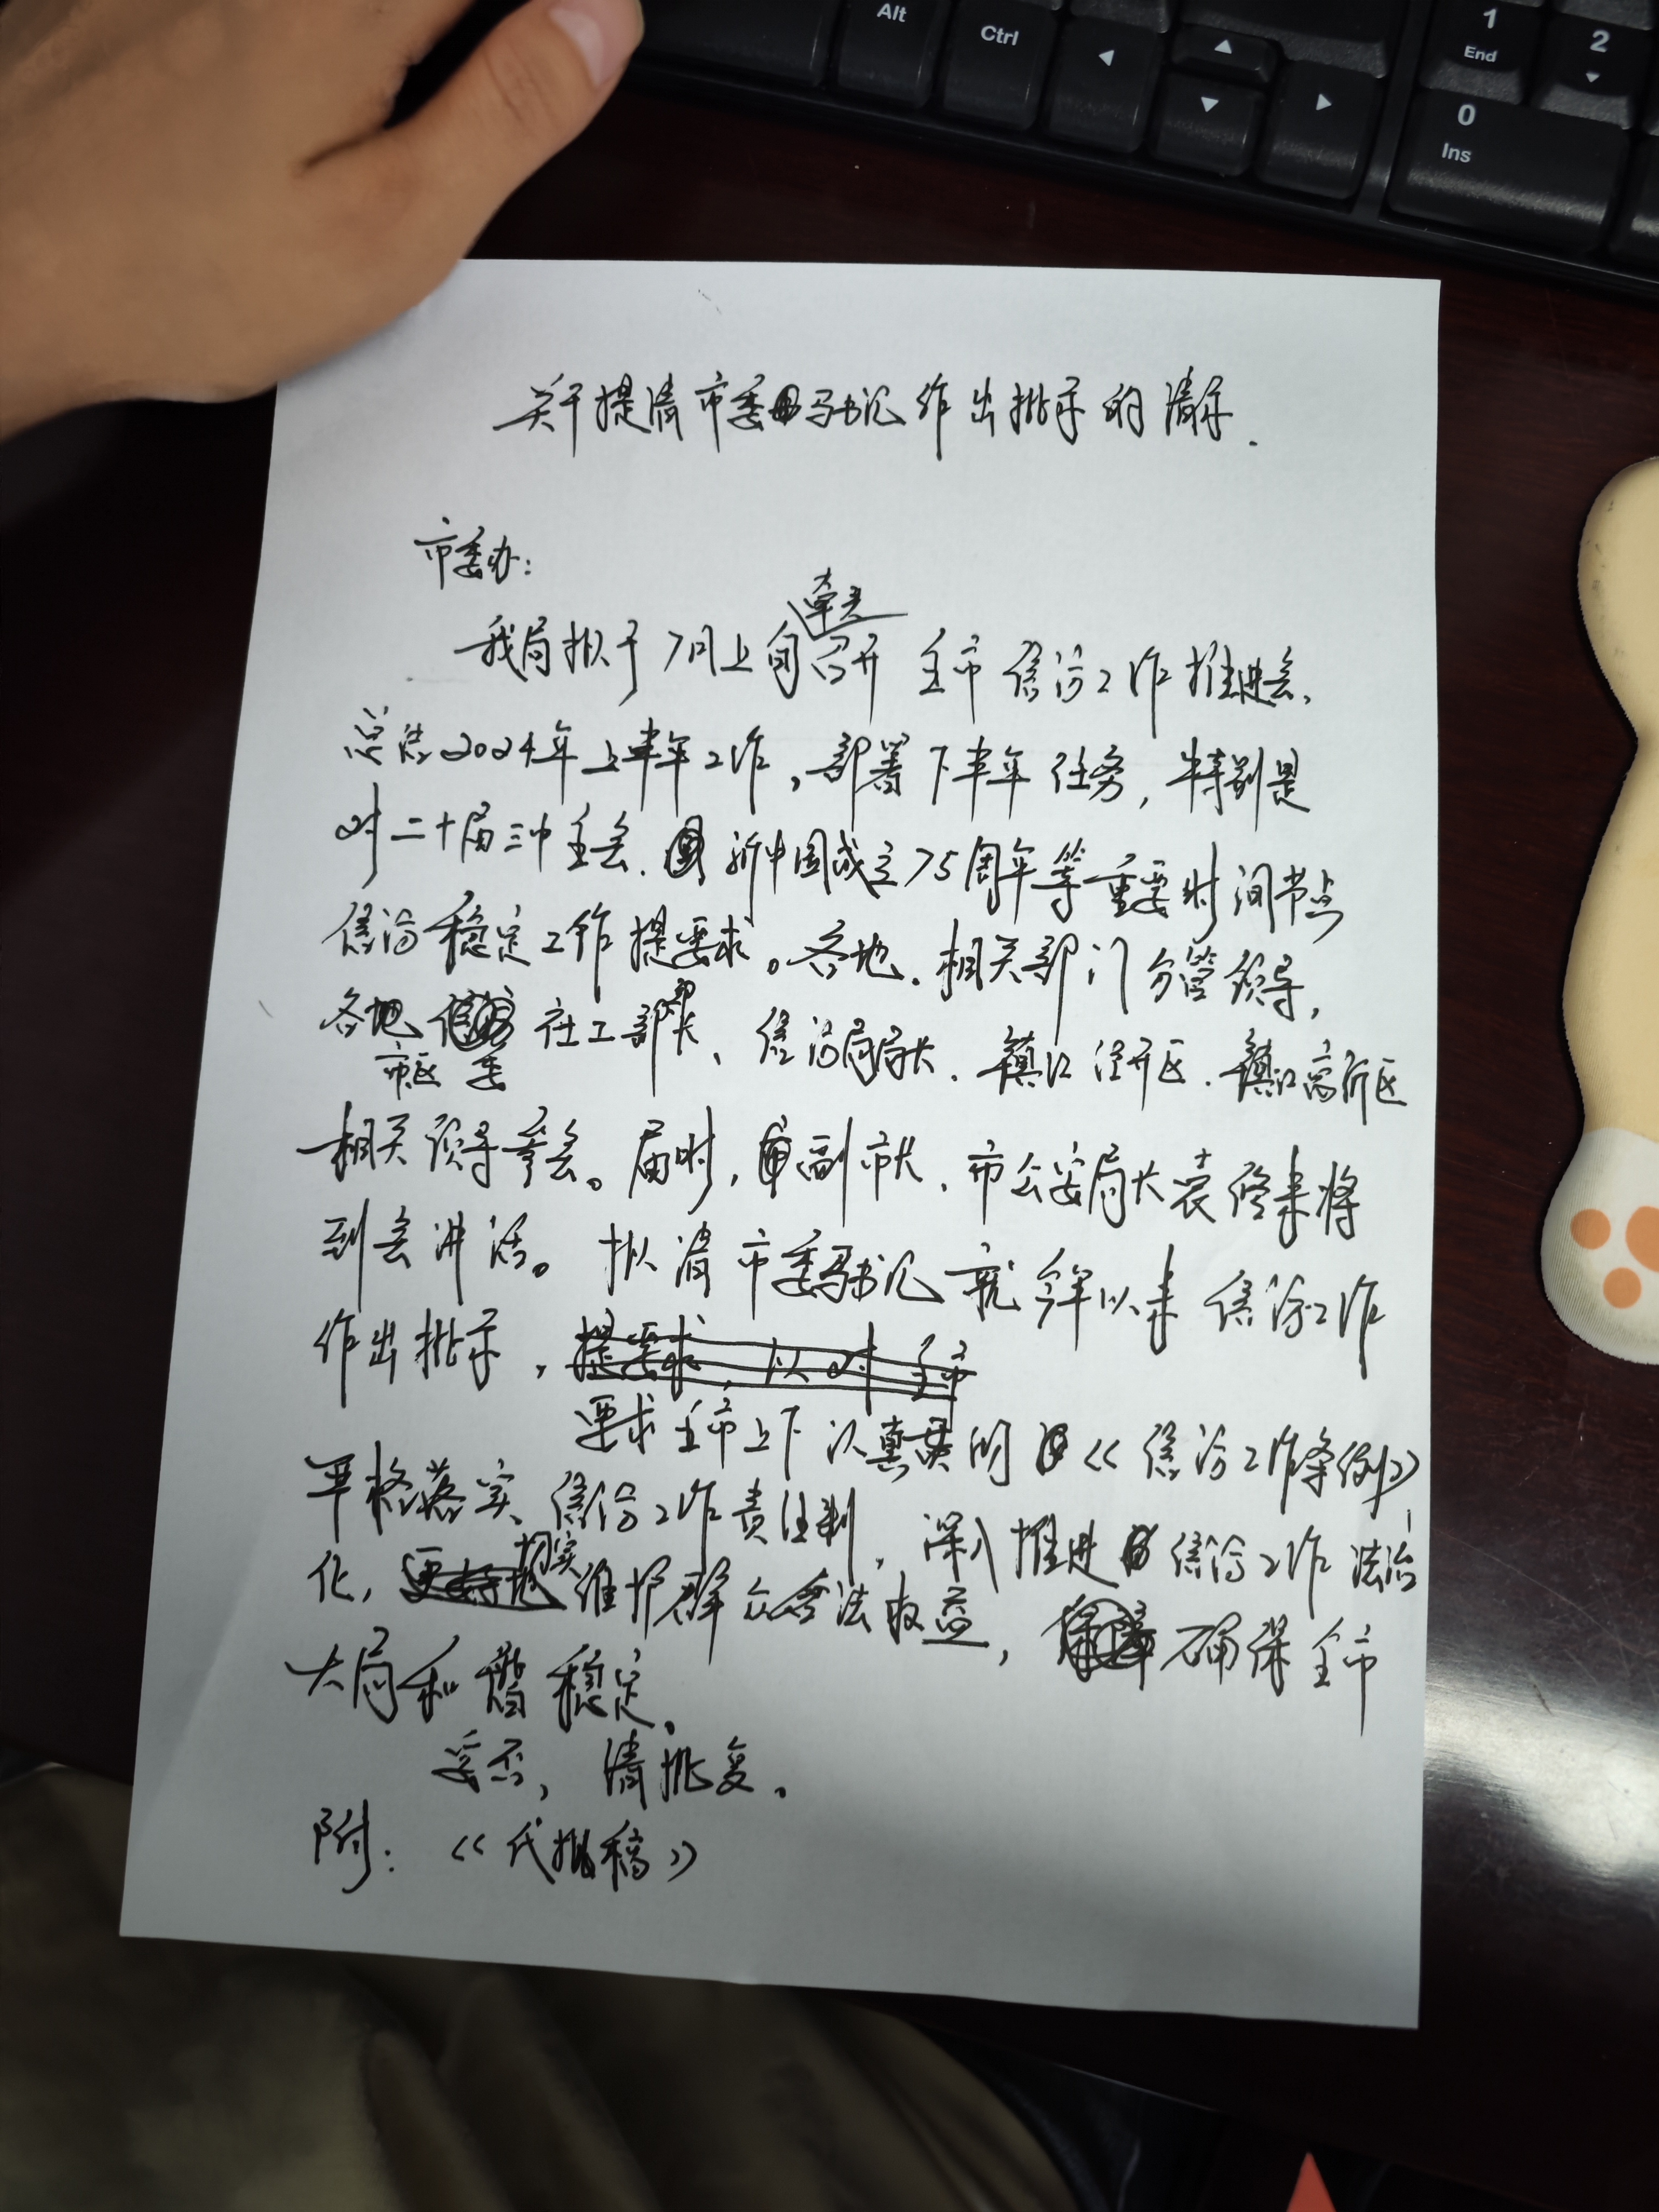 Alt
Ctrl
1
End
2
0
Ins
关于提请市委马书记作出批示的请示.
市委办:
牵头
我局拟于7月上旬召开全市信访工作推进会,
总结2024年上半年工作,部署下半年任务,特别是
对二十届三中全会、新中国成立75周年等重要时间节点
信访稳定工作提要求。各地、相关部门分管领导,
各地 社工部部长、信访局局长、镇江经开区、镇江高新区
市区委
相关领导参会。届时,副市长、市公安局长裴将
到会讲话。拟请市委马书记就今年以来信访工作
作出批示,提要求,以对全市
要求全市上下认真贯彻《信访工作条例》
严格落实信访工作责任制,深入推进信访工作法治
化,切实维护群众合法权益,确保全市
大局和谐稳定。
妥否,请批复。
附:《代拟稿》